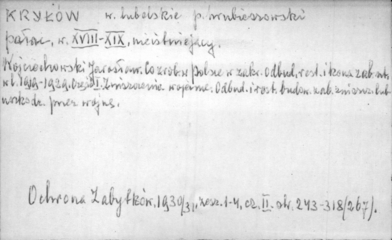 KRYŁÓW w. lubelskie p. hrubieszowski
pałac, w. XVIII-XIX, nieistniejący.
Wojciechowski Jarosław. Co zrob. w Polsce w zakr. odbud., rest. i konserw. zab. arch.
w l. 1919-1929. Cz. II. Zniszczenie wojenne. Odbud. i rest. budow. zab. zniszcz. lub
uszkodz. przez wojnę.
Ochrona Zabytków, 1930/31, zesz. 1-4, cz. II. str. 243-318 (267).